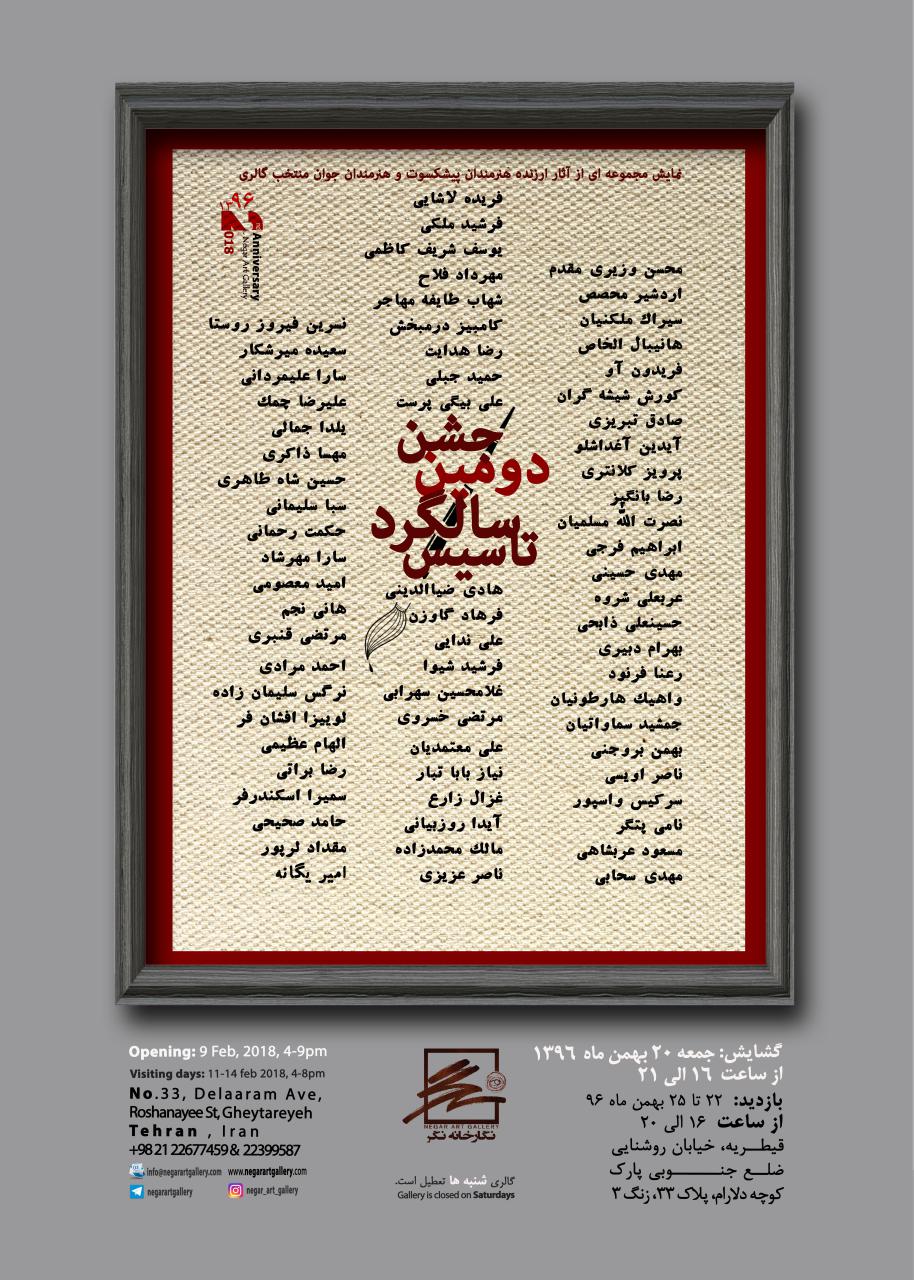 نمایش مجموعه ای از آثار ارزنده هنرمندان پیشکسوت و هنرمندان جوان منتخب گالری
۱۳۹۶
2018
Anniversary
Negar Art Gallery
محسن وزیری مقدم
اردشیر محصص
سیراک ملکنیان
هانیبال الخاص
فریدون آو
کورش شیشه گران
صادق تبریزی
آیدین آغداشلو
پرویز کلانتری
رضا بانگیز
نصرت الله مسلمیان
ابراهیم فرجی
مهدی حسینی
عربعلی شروه
حسینعلی ذابحی
بهرام دبیری
رعنا فرنود
واهیک هارطونیان
جمشید سماواتیان
بهمن بروجنی
ناصر اویسی
سرکیس واسپور
نامی پتگر
مسعود عربشاهی
مهدی سحابی
فریده لاشایی
فرشید ملکی
یوسف شریف کاظمی
مهرداد فلاح
شهاب طایفه مهاجر
کامبیز درمبخش
رضا هدایت
حمید جبلی
علی بیگی پرست
جشن
دومین
سالگرد
تاسیس
هادی ضیاالدینی
فرهاد گاوزن
علی ندایی
فرشید شیوا
غلامحسین سهرابی
مرتضی خسروی
علی معتمدیان
نیاز بابا تبار
غزال زارع
آیدا روزبیانی
مالک محمدزاده
ناصر عزیزی
نسرین فیروز روستا
سعیده میرشکار
سارا علیمردانی
علیرضا چمک
یلدا جمالی
مهسا ذاکری
حسین شاه طاهری
سبا سلیمانی
حکمت رحمانی
سارا مهرشاد
امید معصومی
هانی نجم
مرتضی قنبری
احمد مرادی
نرگس سلیمان زاده
لوییزا افشان فر
الهام عظیمی
رضا براتی
سمیرا اسکندرفر
حامد صحیحی
مقداد لرپور
امیر یگانه
گشایش: جمعه ۲۰ بهمن ماه ۱۳۹۶
از ساعت ۱۶ الی ۲۱
بازدید: ۲۲ تا ۲۵ بهمن ماه ۹۶
از ساعت ۱۶ الی ۲۰
قیطریه، خیابان روشنایی
ضلع جنوبی پارک
کوچه دلارام، پلاک ۳۳، زنگ ۳
NEGAR ART GALLERY
نگارخانه نگر
گالری شنبه ها تعطیل است.
Gallery is closed on Saturdays
Opening: 9 Feb, 2018, 4-9pm
Visiting days: 11-14 feb 2018, 4-8pm
No.33, Delaaram Ave,
Roshanayee St, Gheytareyeh
Tehran , Iran
+98 21 22677459 & 22399587
info@negarartgallery.com www.negarartgallery.com
negarartgallery negar_art_gallery